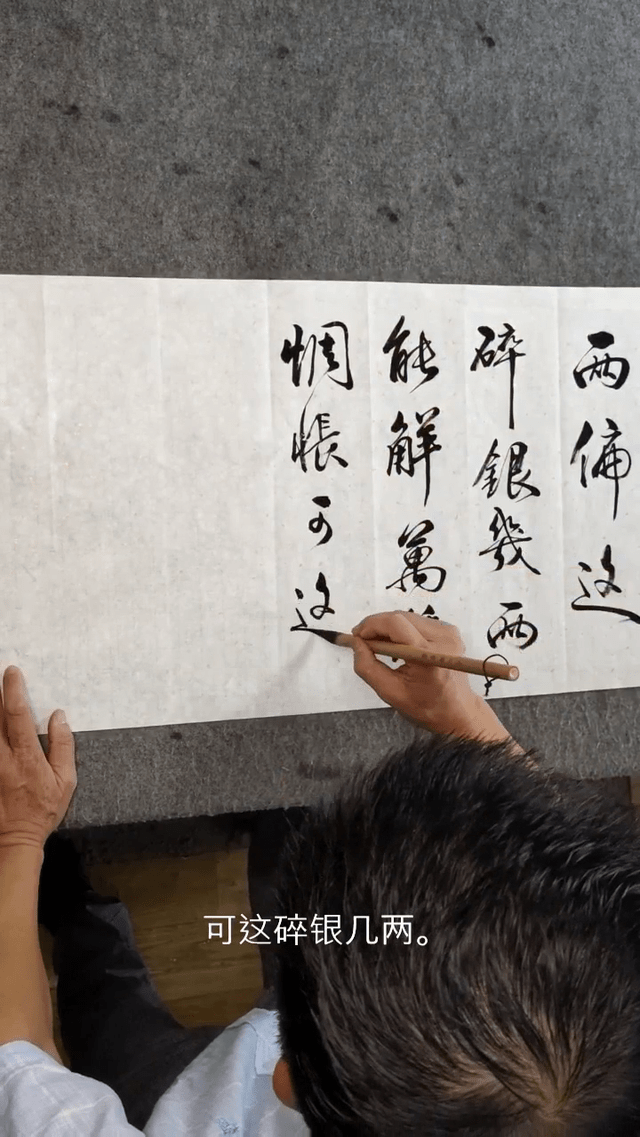 两偏这
碎銀幾两
能解萬
惆悵可这
可这碎银几两。